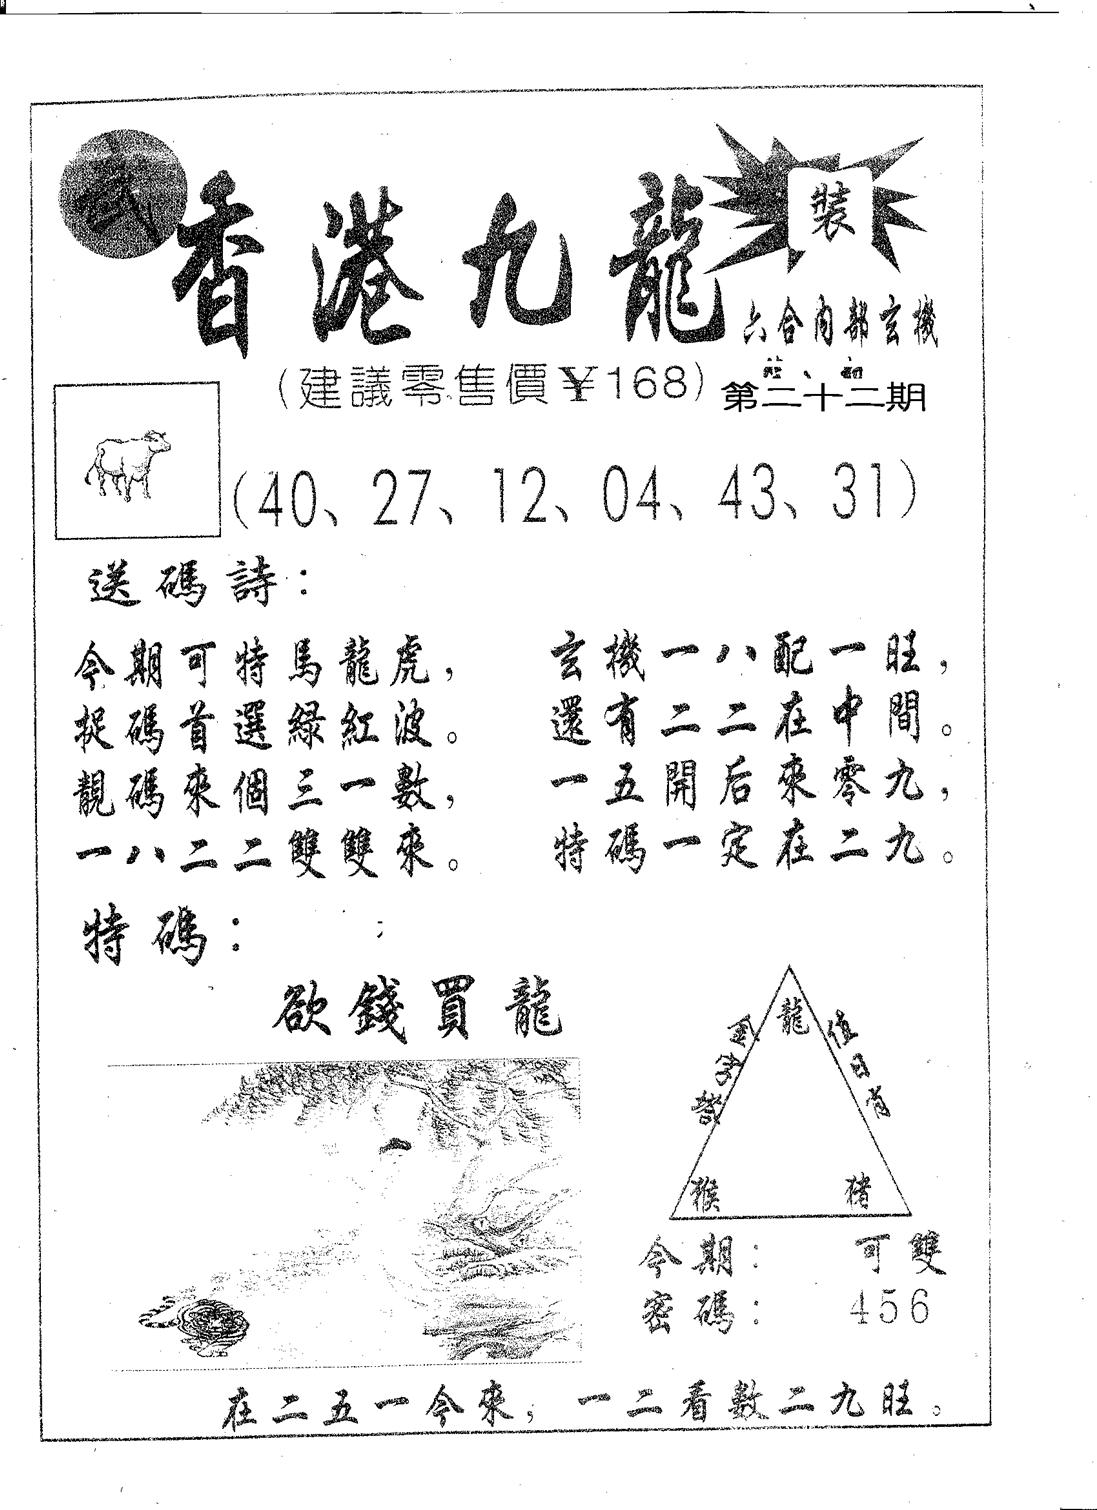 香港九龍
裝
六合內部玄機
(建議零售價￥168)
第二十二期
(40、27、12、04、43、31)
送碼詩：
今期可特馬龍虎，
捉碼首選綠紅波。
靚碼來個三一數，
一八二二雙雙來。
玄機一八配一旺，
還有二二在中間。
一五開后來零九，
特碼一定在二九。
特碼：
欲錢買龍
龍
值日肖
猴
猪
今期： 可雙
密碼： 456
在二五一今來，一二看數二九旺。